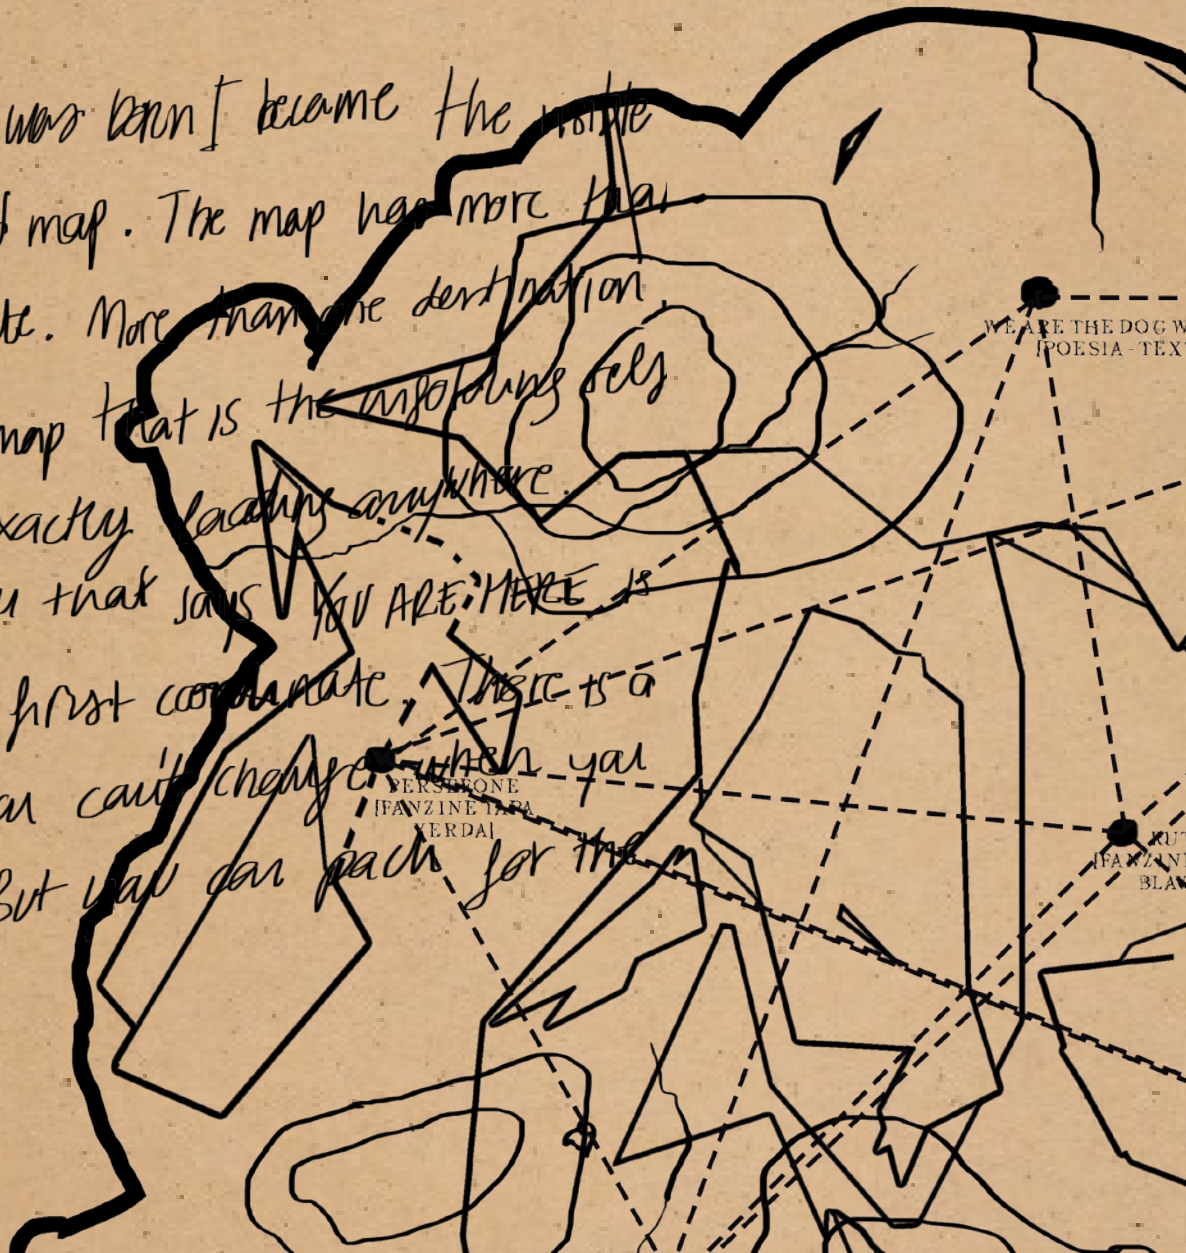 was born I became the visible
map. The map has more than
More than one destination,
map that is the unfolding self
leading anywhere.
that says YOU ARE HERE is
first coordinate. There is a
can't change when you
But you can pack for the
WE ARE THE DOG W
[POESIA-TEX
PERSEFONE
[FANZINE TAPA
VERDA]
RU
[FANZIN
BLA